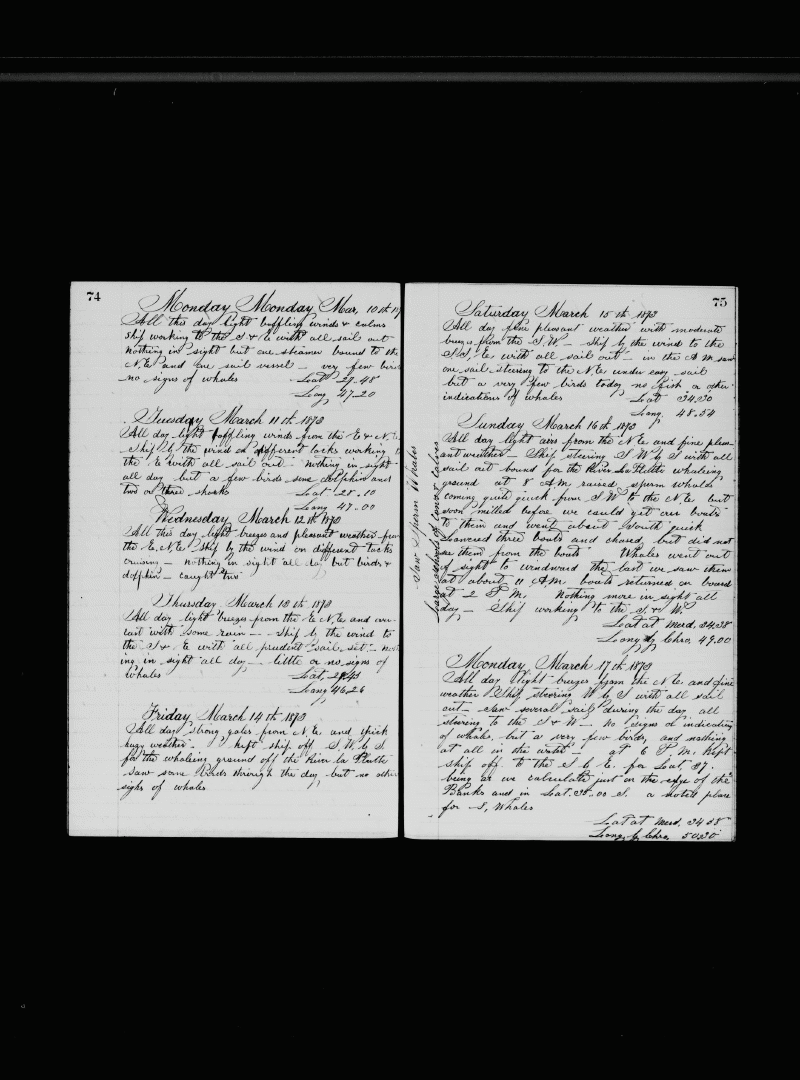 74
Monday Monday Mar, 10th
All this day light baffling winds & calms
Ship working to the S & E with all sail out
Nothing in sight but one steamer bound to the
N,E and one sail vessel — very few birds
no signs of whales Lat 27-48
Long 47-20
Tuesday March 11th 1873
All day light baffling winds from the E & N,E
Ship by the wind on different tacks working
the E with all sail out — nothing in sight
all day but a few birds some dolphin and
two or three sharks Lat 28-10
Long 47-00
Wednesday March 12th 1873
All this day light breezes and pleasant weather from
the E,N,E Ship by the wind on different tacks
cruising — nothing in sight all day but birds &
dolphin — caught two
Thursday March 13th 1873
All day light breezes from the E N,E and over
cast with some rain — Ship by the wind to
the S & E with all prudent sail set — noth
ing in sight all day — little or no signs of
whales Lat, 29,43
Long 46,26
Friday, March 14th 1873
All day strong gales from N,E, and thick
hazy weather — Kept ship off S,W & S
for the whaleing ground off the River la Platte
Saw some birds through the day, but no other
sighs of whales
75
Saturday March 15th 1873
All day fine pleasant weather with moderate
breezes from the S.W. — Ship by the wind to the
S,S,E with all sail out — in the A M saw
one sail steering to the N.E under easy sail
but a very few birds today no fish or other
indications of whales Lat 34,30
Long. 48.54
Sunday March 16th 1873
All day light airs from the N E and fine pleas-
ant weather — Ship steering S W & S with all
sail out bound for the River La Platte whaleing
ground at 8 AM raised sperm whales
coming quite quick from S W to the N,E but
soon milled before we could get our boats
to them and went about South quick
Lowered three boats and chased, but did not
see them from the boats Whales went out
of sight to windward the last we saw them
at about 11 A.M. boats returned on board
at 2 P,M. Nothing more in sight all
day — Ship working to the S & W
Lat at Merd, 34.38
Long by Chro, 49.00
Saw Sperm Whales
Large school of Cows & Calves
Monday March 17th 1873
All day light breezes from the N E. and fine
weather Ship steering W & S with all sail
out — Saw several sail during the day all
steering to the S & W — No signs or indication
of whale, but a very few birds, and nothing
at all in the water — at 6 P,M. Kept
ship off to the S & E. for Lat, 37.
being as we calculate just on the edge of the
Banks and in Lat. 35-00 S. a noted place
for S, Whales
Lat at Merd, 34 58
Long, by Chro, 50,30